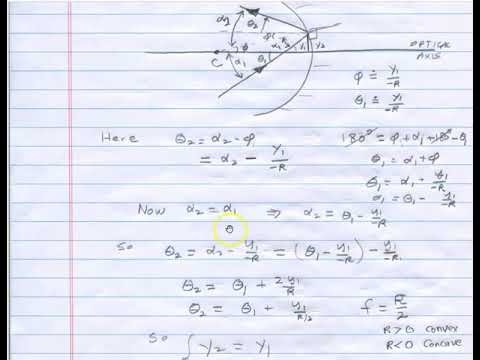 OPTICAL
AXIS
C
φ ≐ y₁/-R
θ₁ ≐ y₁/-R
Here θ₂ = α₂ - φ
= α₂ - y₁/-R
180° = φ + α₁ + 180° - θ₁
θ₁ = α₁ + φ
θ₁ = α₁ + y₁/-R
α₁ = θ₁ - y₁/-R
Now α₂ = α₁ ⇒ α₂ = θ₁ - y₁/-R
θ
So θ₂ = α₂ - y₁/-R = (θ₁ - y₁/-R) - y₁/-R
θ₂ = θ₁ + 2y₁/R
θ₂ = θ₁ + y₁/R/2
f = R/2
R > 0 convex
R < 0 concave
So
y₂ = y₁